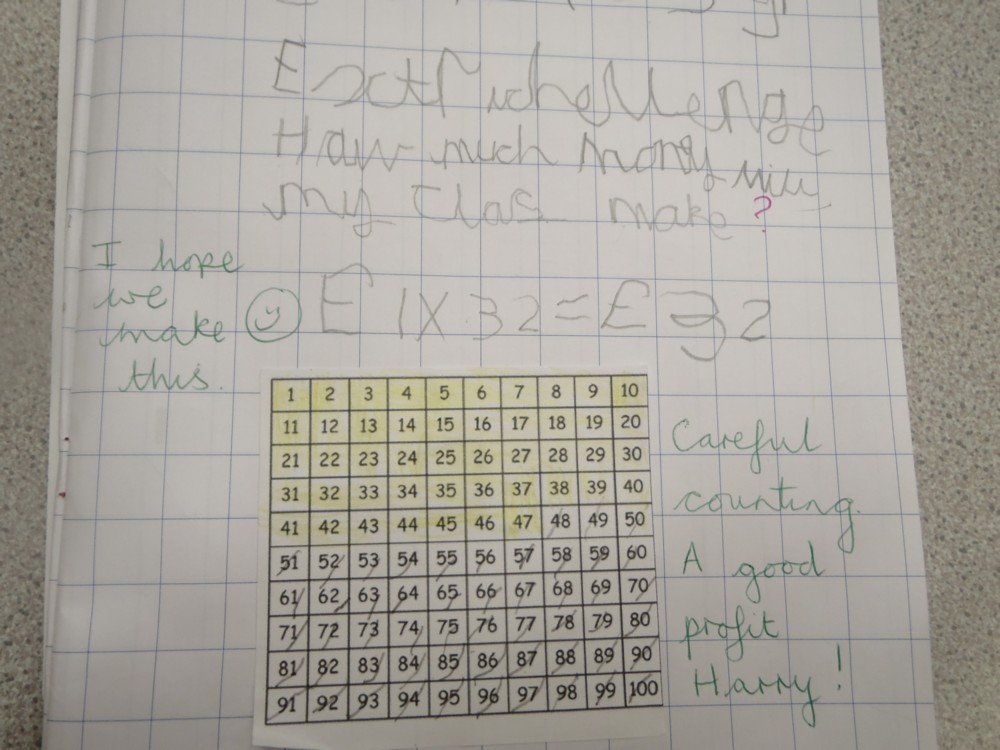 How much mony will
my clas make?
I hope
we
make
this.
£1X32=£32
1 2 3 4 5 6 7 8 9 10
11 12 13 14 15 16 17 18 19 20
21 22 23 24 25 26 27 28 29 30
31 32 33 34 35 36 37 38 39 40
41 42 43 44 45 46 47 48 49 50
51 52 53 54 55 56 57 58 59 60
61 62 63 64 65 66 67 68 69 70
71 72 73 74 75 76 77 78 79 80
81 82 83 84 85 86 87 88 89 90
91 92 93 94 95 96 97 98 99 100
Careful
counting.
A good
profit
Harry!